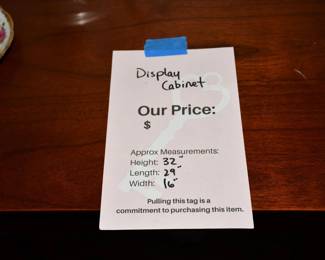 Display
Cabinet
Our Price:
$
Approx Measurements:
Height: 32"
Length: 29"
Width: 16"
Pulling this tag is a
commitment to purchasing this item.